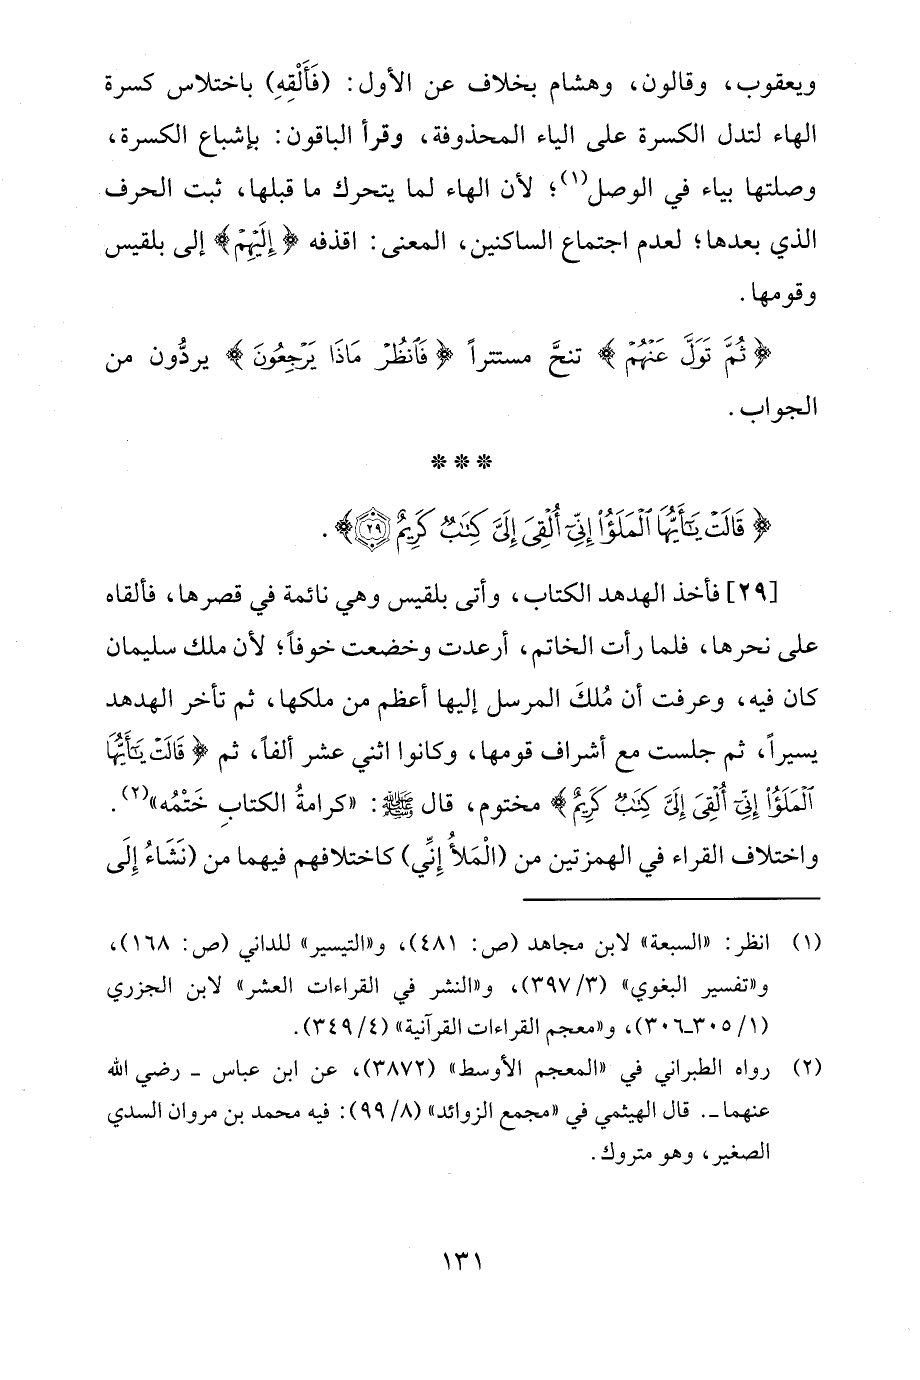 ويعقوب، وقالون، وهشام بخلاف عن الأول: (فَأَلْقِهِ) باختلاس كسرة
الهاء لتدل الكسرة على الياء المحذوفة، وقرأ الباقون: بإشباع الكسرة،
وصلتها بياء في الوصل(١)؛ لأن الهاء لما يتحرك ما قبلها، ثبت الحرف
الذي بعدها؛ لعدم اجتماع الساكنين، المعنى: اقذفه ﴿إِلَيْهِمْ﴾ إلى بلقيس
وقومها.
﴿ثُمَّ تَوَلَّ عَنْهُمْ﴾ تنحَّ مستتراً ﴿فَٱنظُرْ مَاذَا يَرْجِعُونَ﴾ يردُّون من
الجواب.
***
﴿قَالَتْ يَٰٓأَيُّهَا ٱلْمَلَؤُا۟ إِنِّىٓ أُلْقِىَ إِلَىَّ كِتَٰبٌ كَرِيمٌ ۝٢٩﴾.
[٢٩] فأخذ الهدهد الكتاب، وأتى بلقيس وهي نائمة في قصرها، فألقاه
على نحرها، فلما رأت الخاتم، أرعدت وخضعت خوفاً؛ لأن ملك سليمان
كان فيه، وعرفت أن مُلكَ المرسل إليها أعظم من ملكها، ثم تأخر الهدهد
يسيراً، ثم جلست مع أشراف قومها، وكانوا اثني عشر ألفاً، ثم ﴿قَالَتْ يَٰٓأَيُّهَا
ٱلْمَلَؤُا۟ إِنِّىٓ أُلْقِىَ إِلَىَّ كِتَٰبٌ كَرِيمٌ﴾ مختوم، قال ﷺ: «كرامةُ الكتابِ خَتْمُه»(٢).
واختلاف القراء في الهمزتين من (الْمَلأُ إِنِّي) كاختلافهم فيهما من (نَشَاءُ إِلَى
(١) انظر: «السبعة» لابن مجاهد (ص: ٤٨١)، و«التيسير» للداني (ص: ١٦٨)،
و«تفسير البغوي» (٣/٣٩٧)، و«النشر في القراءات العشر» لابن الجزري
(١/٣٠٥_٣٠٦)، و«معجم القراءات القرآنية» (٤/٣٤٩).
(٢) رواه الطبراني في «المعجم الأوسط» (٣٨٧٢)، عن ابن عباس _ رضي الله
عنهما _. قال الهيثمي في «مجمع الزوائد» (٨/٩٩): فيه محمد بن مروان السدي
الصغير، وهو متروك.
١٣١